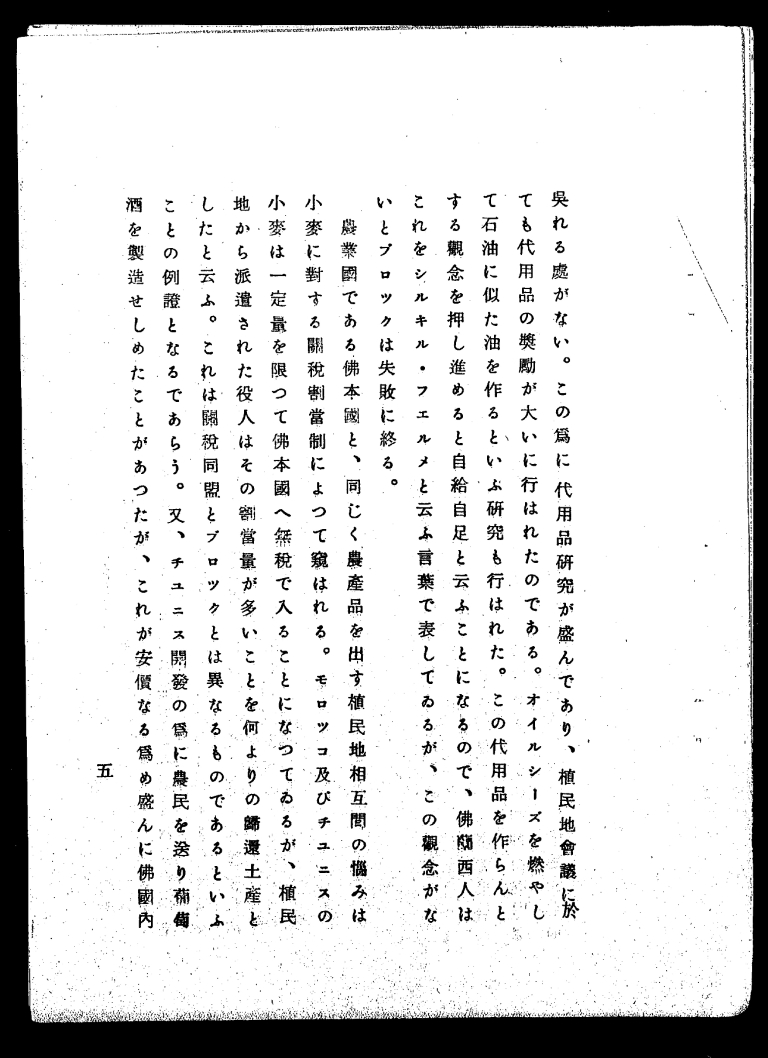 吳れる處がない。この爲に代用品硏究が盛んであり、植民地會議に於
ても代用品の奬勵が大いに行はれたのである。オイルシーズを燃やし
て石油に似た油を作るといふ硏究も行はれた。この代用品を作らんと
する觀念を押し進めると自給自足と云ふことになるので、佛蘭西人は
これをシルキル・フエルメと云ふ言葉で表してゐるが、この觀念がな
いとブロックは失敗に終る。
農業國である佛本國と、同じく農產品を出す植民地相互間の惱みは
小麥に對する關稅割當制によつて窺はれる。モロツコ及びチユニスの
小麥は一定量を限つて佛本國へ無稅で入ることになつてゐるが、植民
地から派遣された役人はその割當量が多いことを何よりの歸還土產と
したと云ふ。これは關稅同盟とブロツクとは異なるものであるといふ
ことの例證となるであらう。又、チユニス開發の爲に農民を送り葡萄
酒を製造せしめたことがあつたが、これが安價なる爲め盛んに佛國內
五